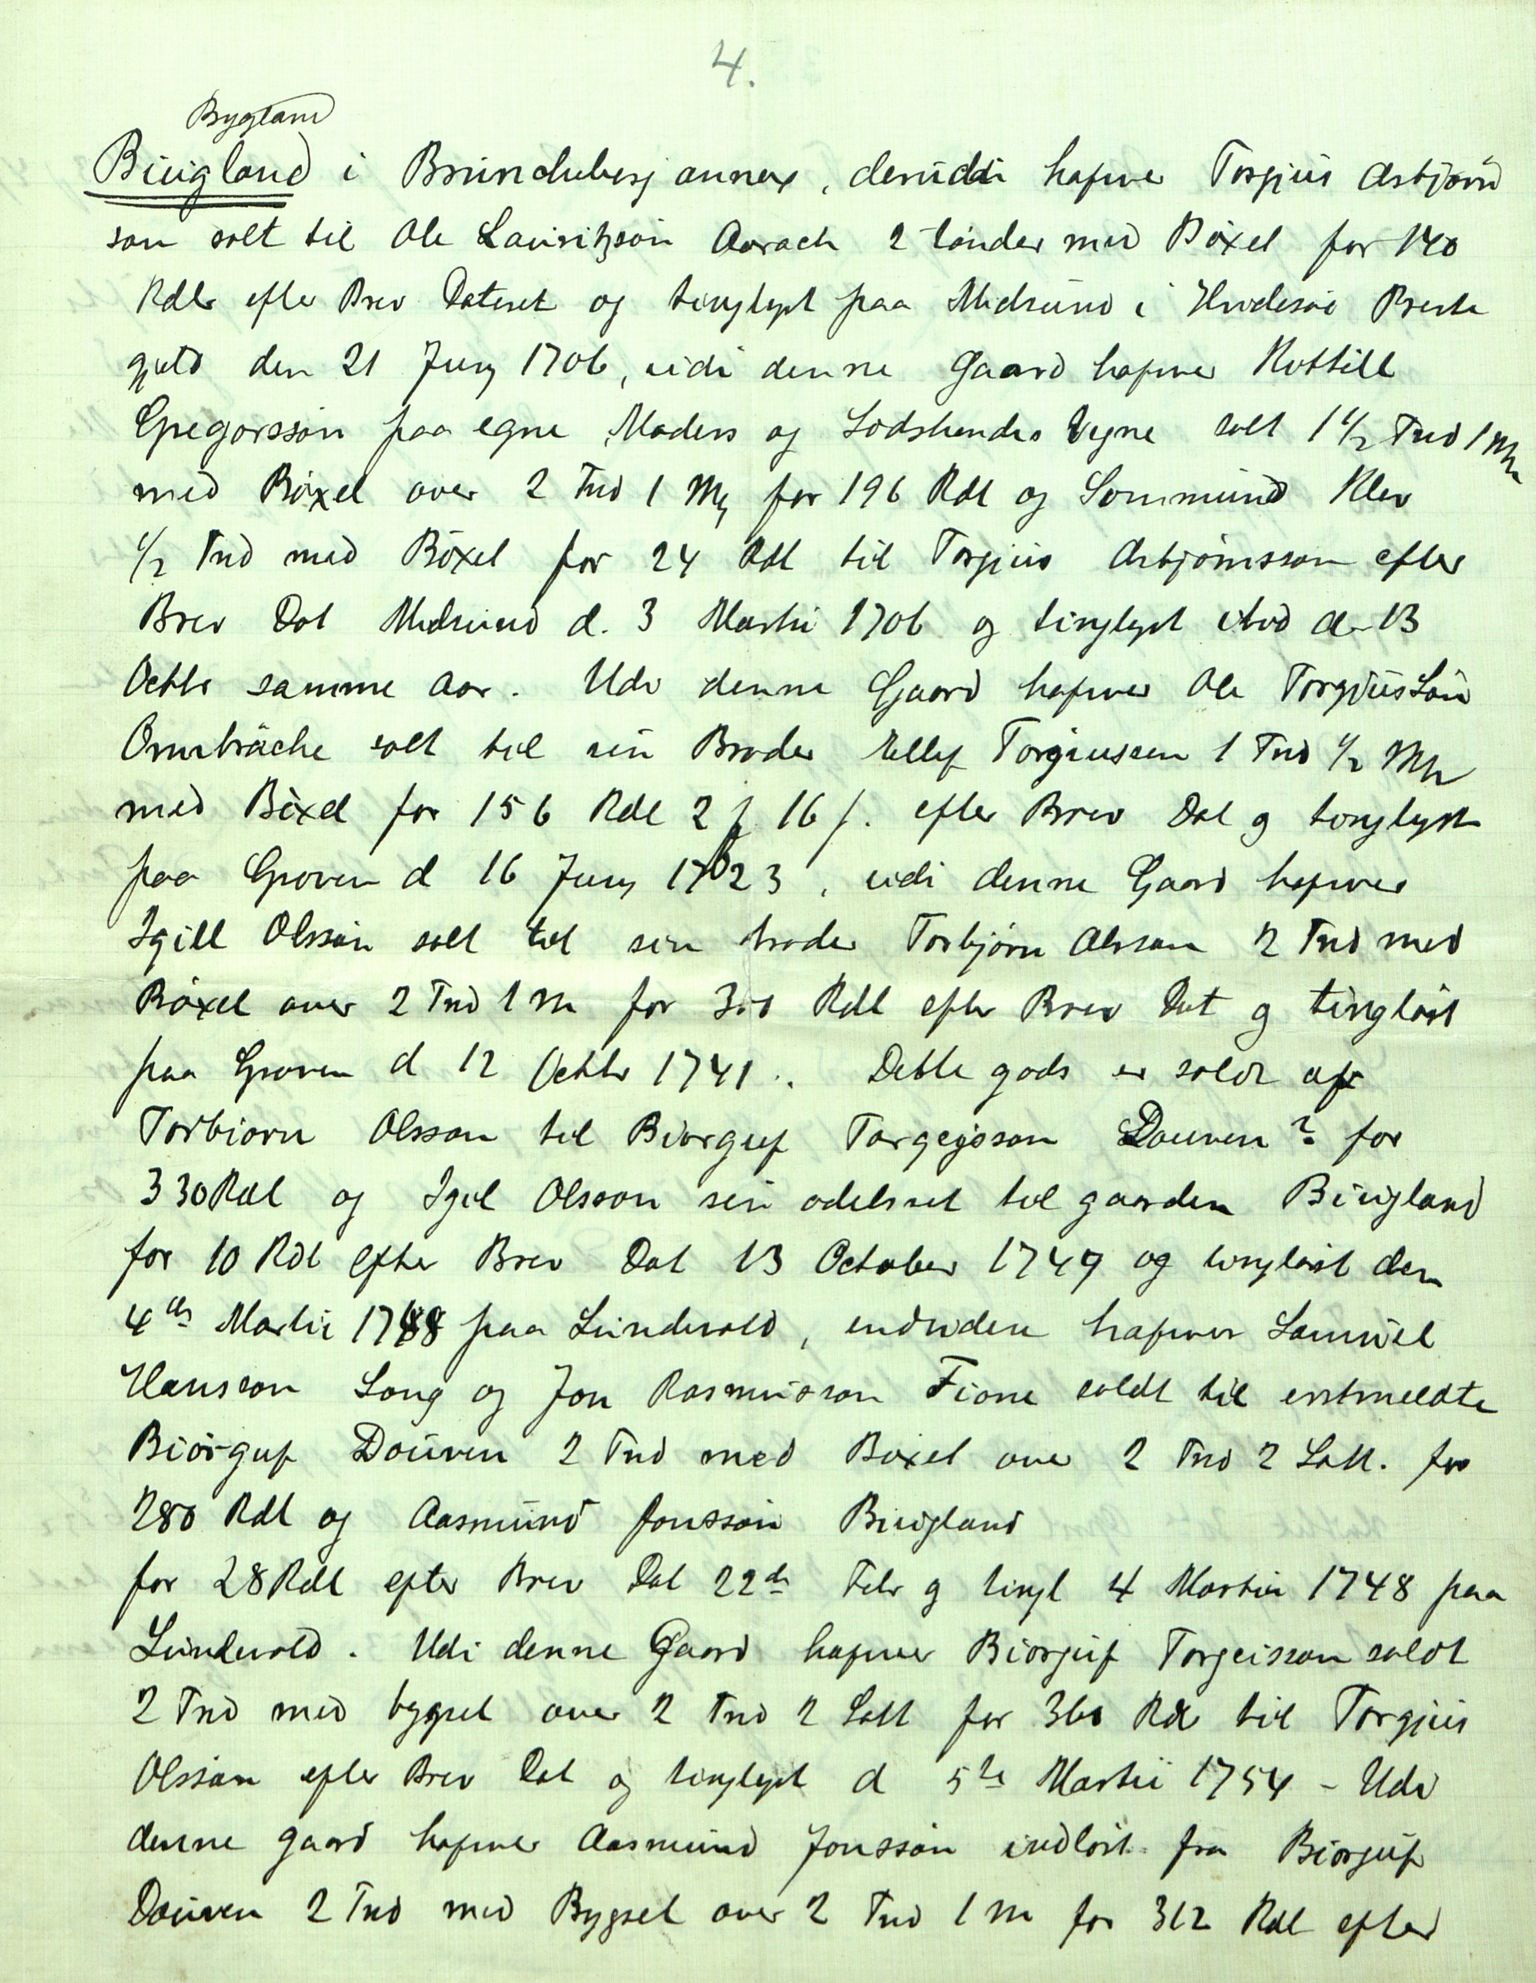 4.
Bygland
Biugland i Brunckeberg annex, derudi hafver Torgius Asbjørn
søn solt til Ole Lauritzsøn Aarach 2 tønder med Bøxel for 140
Rdlr efter Brev Dateret og tinglyst paa Midsund i Hvidesøe Preste
gjeld den 21 Juny 1706, udi denne Gaard hafver Kettill
Gregorssøn paa egne Moders og Sødskendes Vegne solt 1 1/2 Tnd 1 Mk
med Bøxel over 2 Tnd 1 Mk for 196 Rdl og Sommund Klev
1/2 Tnd med Bøxel for 24 Rdl til Torgius Asbjørnsson efter
Brev Dat Midsund d. 3 Martii 1706 og tinglyst d 13
Octbr samme Aar. Udi denne Gaard hafver Ole TorgiusSøn
Ormbräche solt til sin Broder Ellef Torgiussen 1 Tnd 1/2 Mk
med Bøxel for 156 Rdl 2 ƒ 16 ƒ. efter Brev Dat og tinglyst
paa Groven d 16 Juny 1723, udi denne Gaard hafver
Igill Olssøn solt til sin broder Torbjørn Olsson 2 Tnd med
Bøxel over 2 Tnd 1 M for 300 Rdl efter Brev Dat og tingløst
paa Groven d 12 Octbr 1741. Dette gods er soldt af
Torbiorn Olsson til Biorguf Torgejsson Douven ? for
330 Rdl og Igel Olsson sin odelsret til gaarden Biugland
for 10 Rdl efter Brev Dat 13 October 1749 og tingløst den
4de Martii 1748 paa Lundevold, endvidere hafver Samuel
Hansson Lang og Jon Rasmusson Fione soldt til erstmeldte
Biörguf Douven 2 Tnd med Boxel over 2 Tnd 2 Sætt. for
280 Rdl og Aasmund Jonssøn Biugland
for 28 Rdl efter Brev Dat 22de Febr og tingl 4 Martii 1748 paa
Lundevold. Udi denne Gaard hafver Biorguf Torgeisson soldt
2 Tnd med bygsel over 2 Tnd 2 Sætt for 360 Rdl til Torgius
Olssøn efter Brev Dat og tinglyst d 5te Martii 1754 - Udi
denne gaard hafver Aasmund Jonssøn indløst fra Biorguf
Douven 2 Tnd med Bygsel over 2 Tnd 1 M for 312 Rdl efter